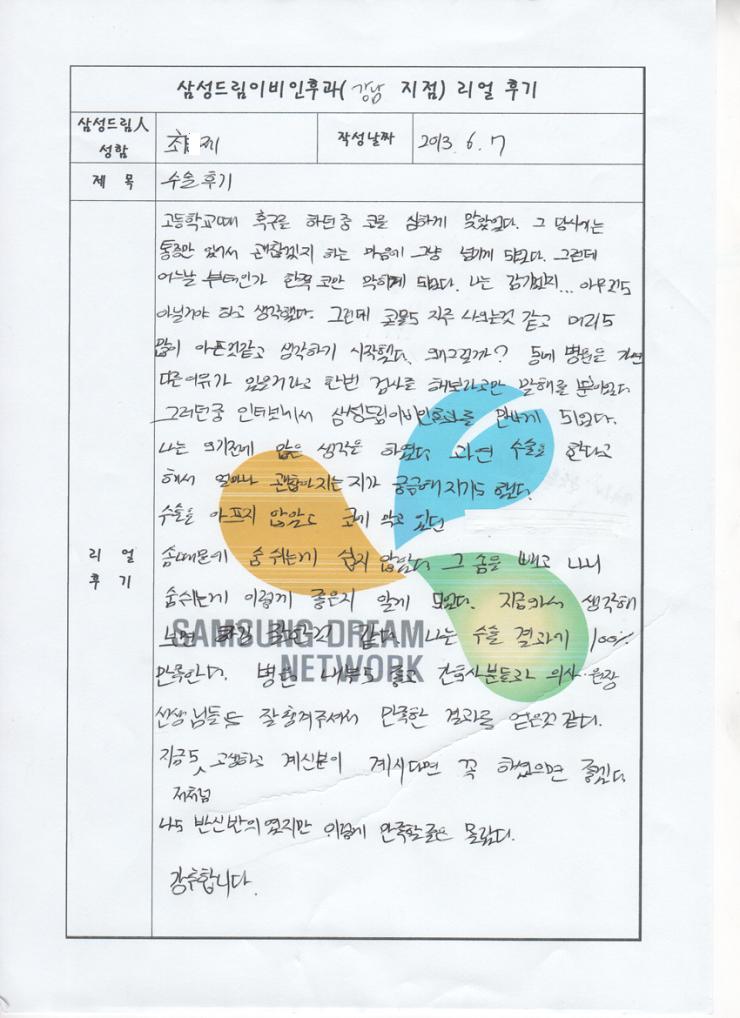 삼성드림이비인후과( 강남 지점) 리얼 후기
삼성드림人
성함
최 제
작성날짜
2013. 6. 7
제 목
수술후기
리 얼
후 기
고등학교때 축구를 하던중 코를 심하게 맞았었다. 그 당시에는
통증만 있어서 괜찮겠지 하는 마음에 그냥 넘기게 되었다. 그런데
어느날 부터인가 한쪽 코만 막히게 되었다. 나는 감기겠지... 아무것도
아닐거야 하고 생각했다. 그런데 콧물도 자주 나오는것 같고 머리도
많이 아픈것같고 생각하기 시작했다. 왜그럴까? 동네 병원은
다른이유가 있을거라고 한번 검사를 해보라고만 말해줄 뿐이었다
그러던중 인터넷에서 삼성드림이비인후과를 만나게 되었다.
나는 오기전에 많은 생각을 하였다 과연 수술을 한다고
해서 얼마나 괜찮아지는 지가 궁금해지기도 했다.
수술은 아프지 않았고 코에 막고 있던
솜때문에 숨쉬는게 쉽지 않았다 그 솜을 빼고 나니
숨쉬는게 이렇게 좋은지 알게 되었다. 지금와서 생각해
보면 잘한것 같다. 나는 수술 결과에 100%
만족한다. 병원 내부도 좋고 간호사분들과 의사·원장
선생님들도 잘챙겨주셔서 만족한 결과를 얻은것 같다.
지금도 저처럼 고생하고 계신분이 계시다면 꼭 하셨으면 좋겠다
나도 반신반의 였지만 이렇게 만족할줄은 몰랐다.
강추합니다.
SAMSUNG DREAM
NETWORK